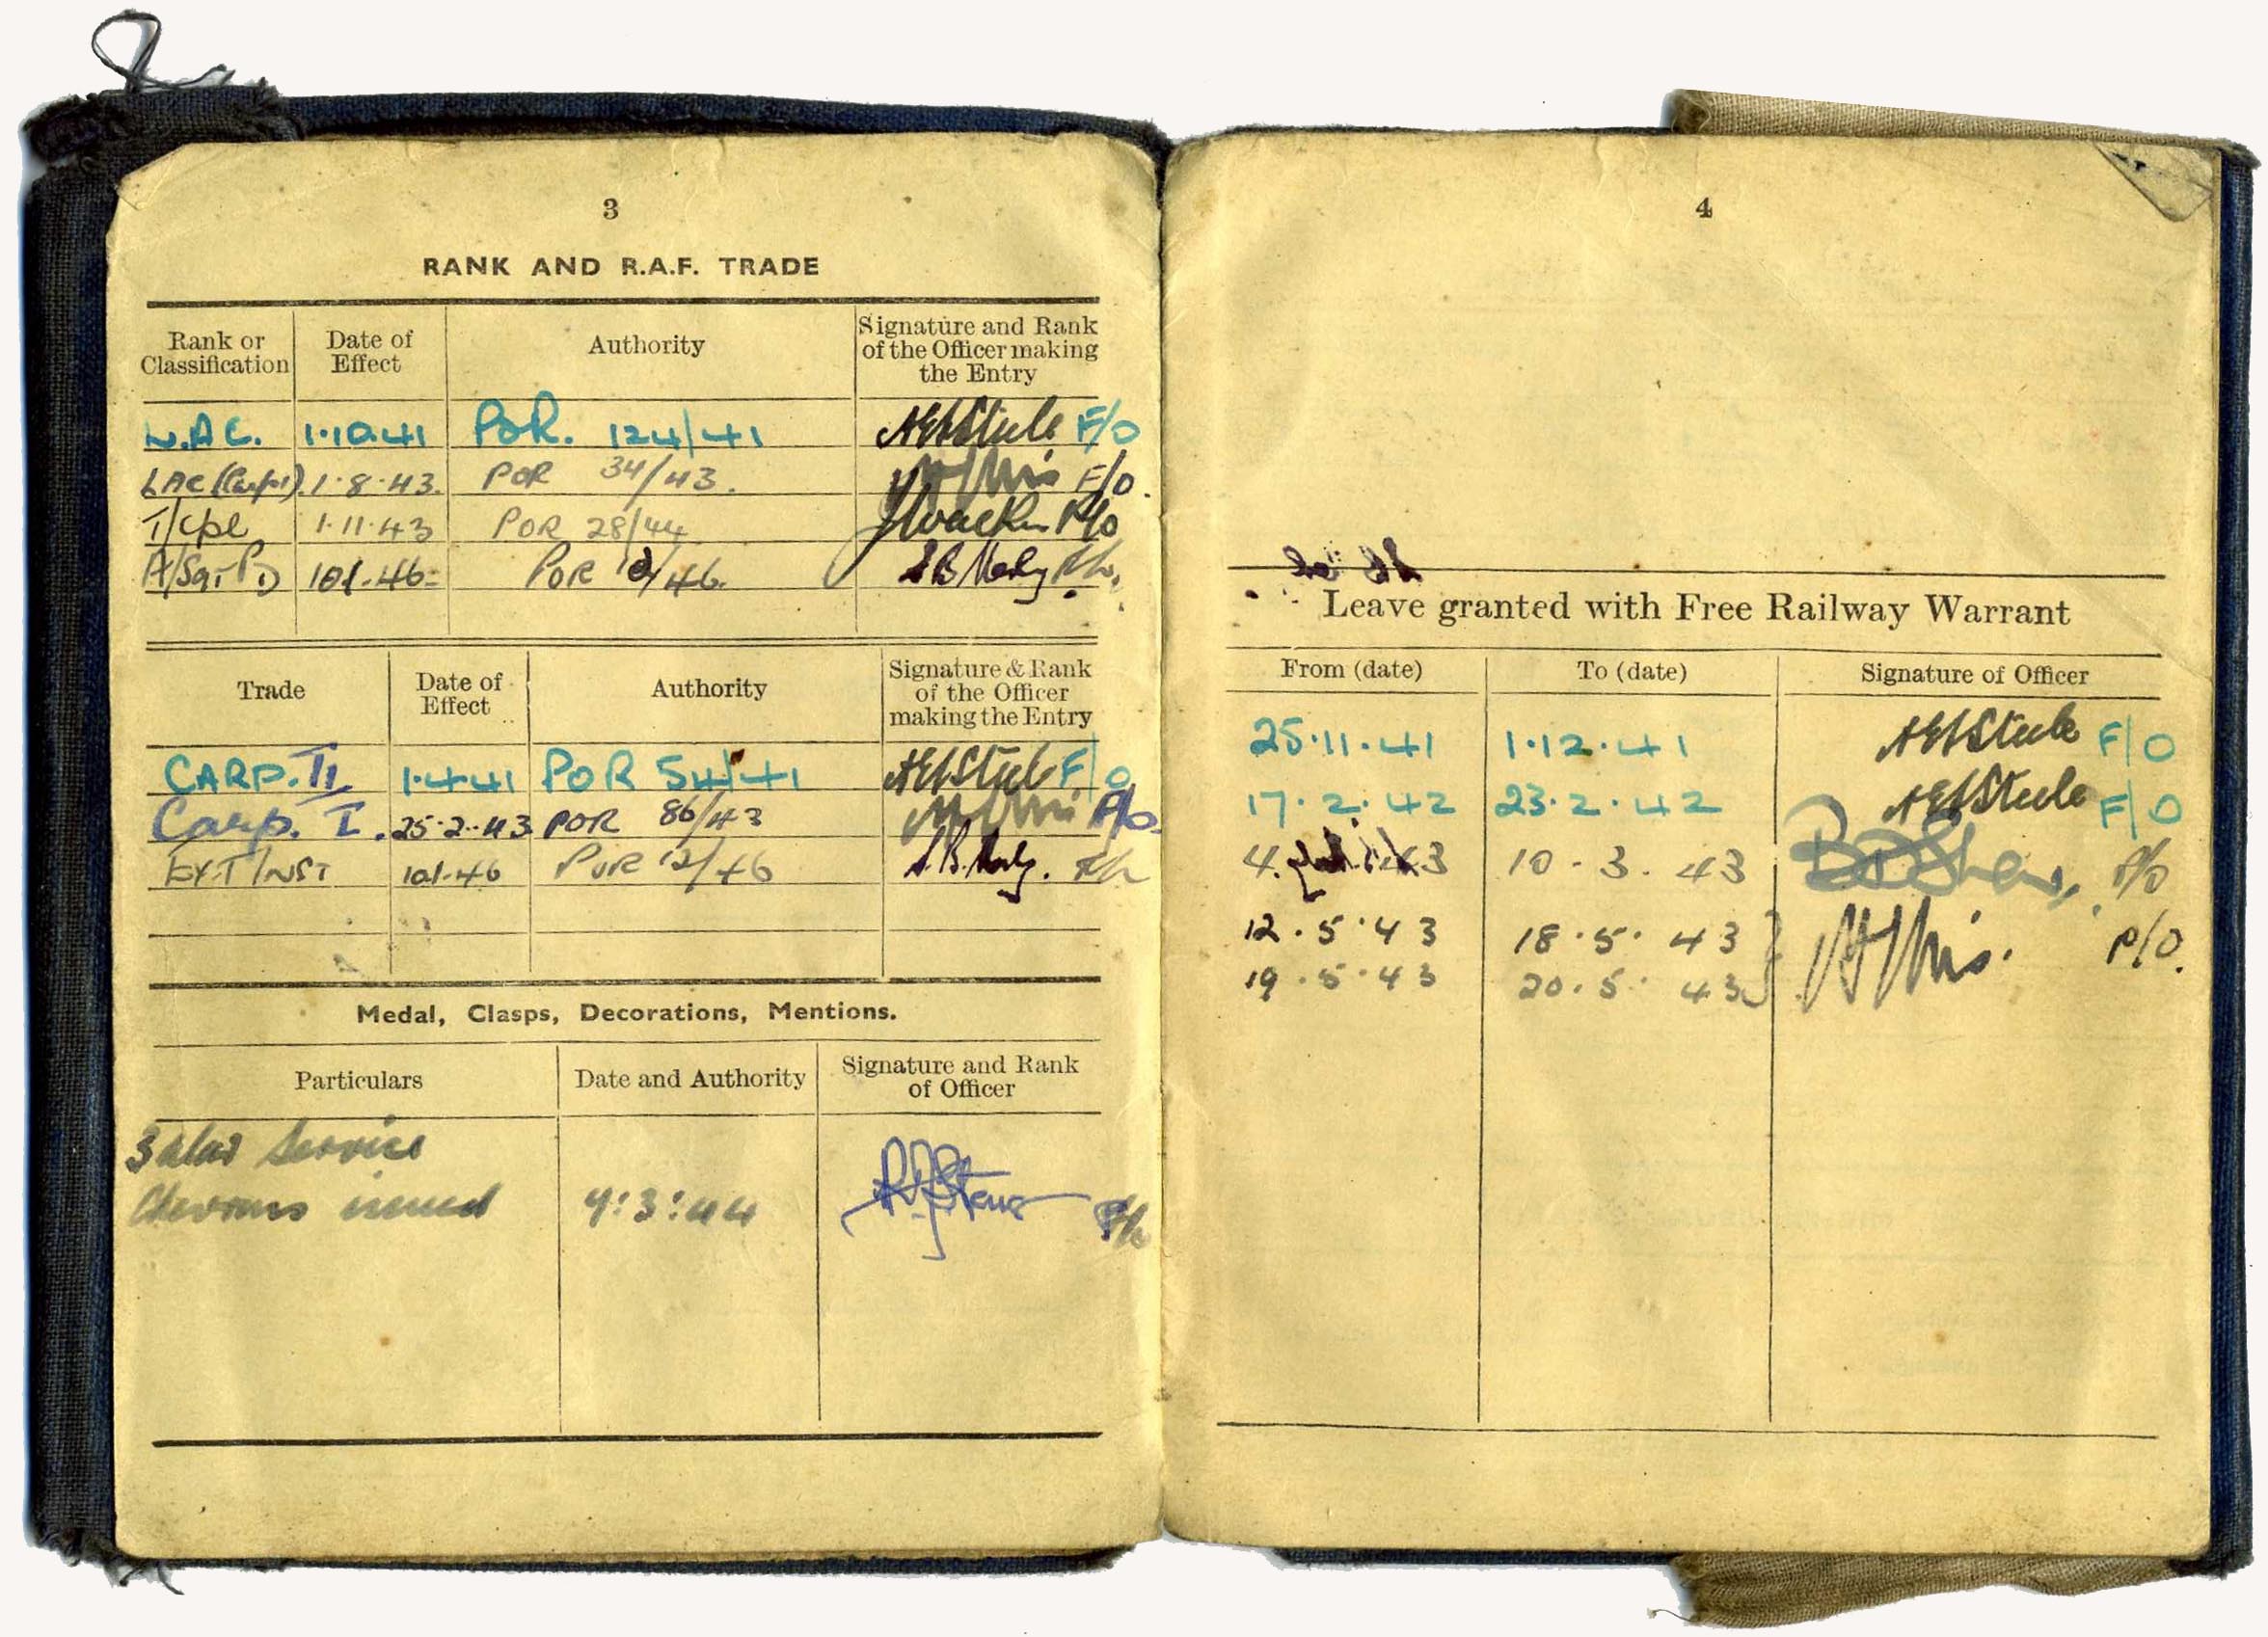 3
RANK AND R.A.F. TRADE
Rank or Classification | Date of Effect | Authority | Signature and Rank of the Officer making the Entry
L.A.C. 1.10.41 POR. 124/41 F/O
LAC (Carp I) 1.8.43. POR 34/43. F/O.
T/Cpl 1.11.43 POR 28/44 F/O
A/Sgt PD POR /46.
Trade | Date of Effect | Authority | Signature & Rank of the Officer making the Entry
CARP. II 1.4.41 POR 54/41 F/O
Carp. I. 25.2.43 POR 86/43
POR 12/46
Medal, Clasps, Decorations, Mentions.
Particulars | Date and Authority | Signature and Rank of Officer
3 Service
Chevrons issued 9:3:44
4
Leave granted with Free Railway Warrant
From (date) | To (date) | Signature of Officer
25.11.41 1.12.41 F/O
17.2.42 23.2.42 F/O
4. 43 10.3.43 P/O
12.5.43 18.5.43 P/O.
19.5.43 20.5.43